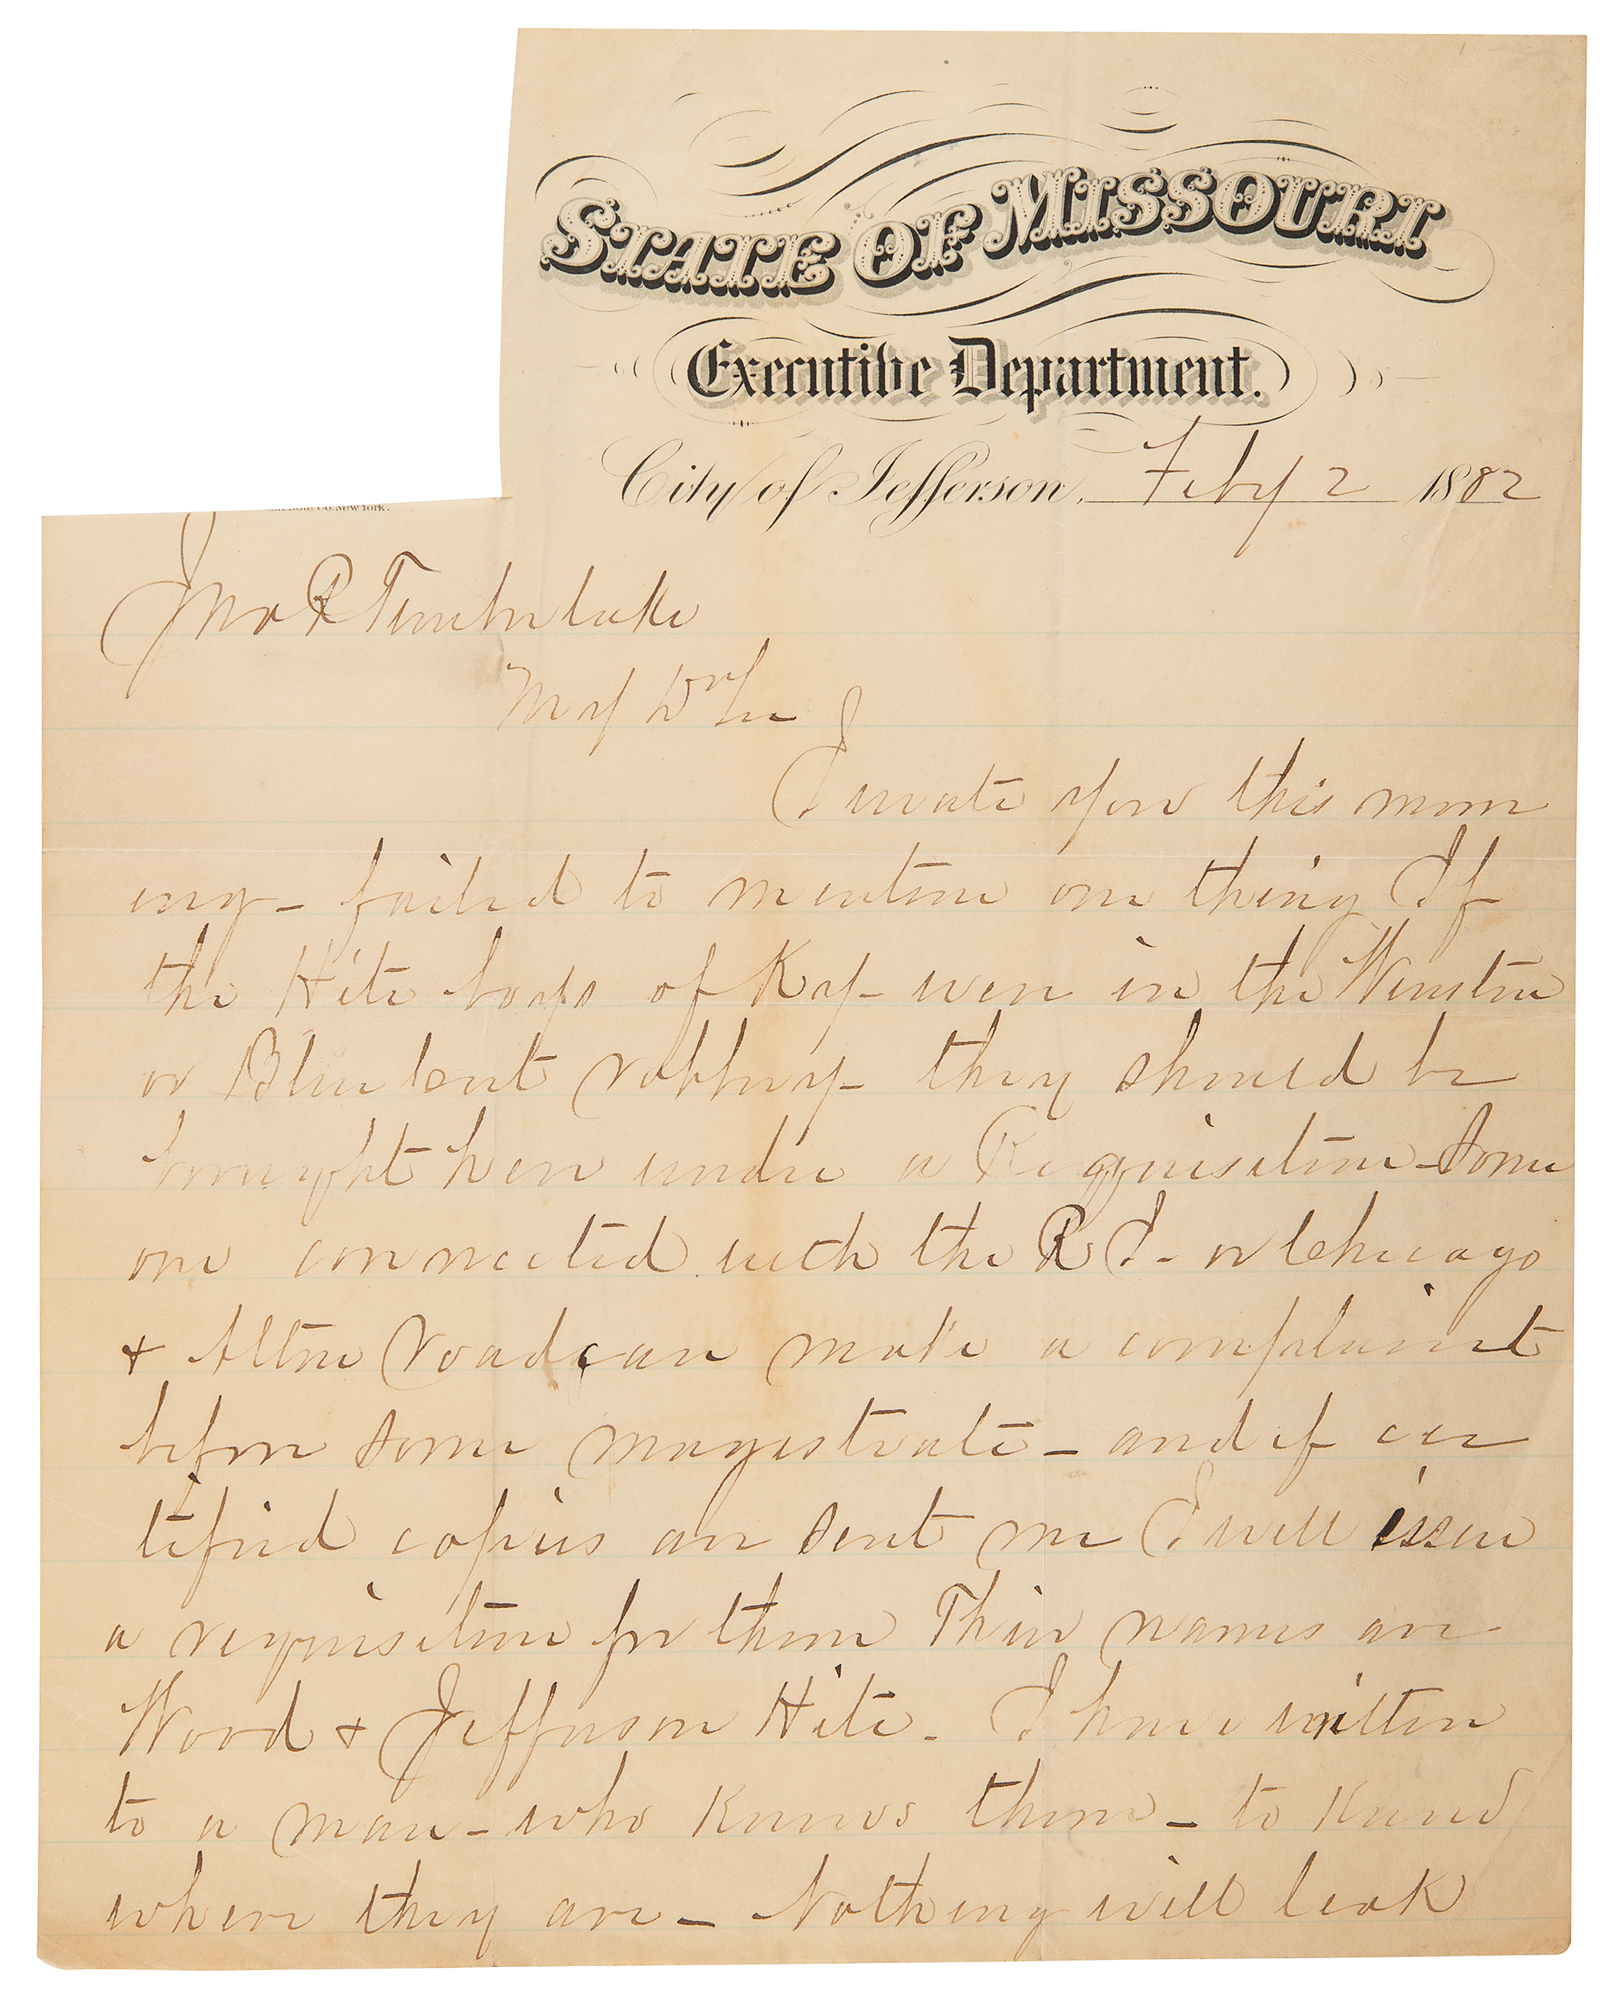 STATE OF MISSOURI
Executive Department.
City of Jefferson, Feby 2 1882
Co. New York.
Jno R Timberlake
My Dr Sir
I wrote you this morn
ing - failed to mention one thing If
the Hite boys of Ky - were in the Winston
or Blue Cut robbery - they should be
brought here under a Requisition - Some
one connected with the R I - or Chicago
& Alton road can make a complaint
before some magistrate - and if cer
tified copies are sent me I will issue
a requisition for them Their names are
Wood & Jefferson Hite - I have written
to a man - who knows them - to
where they are - Nothing will leak